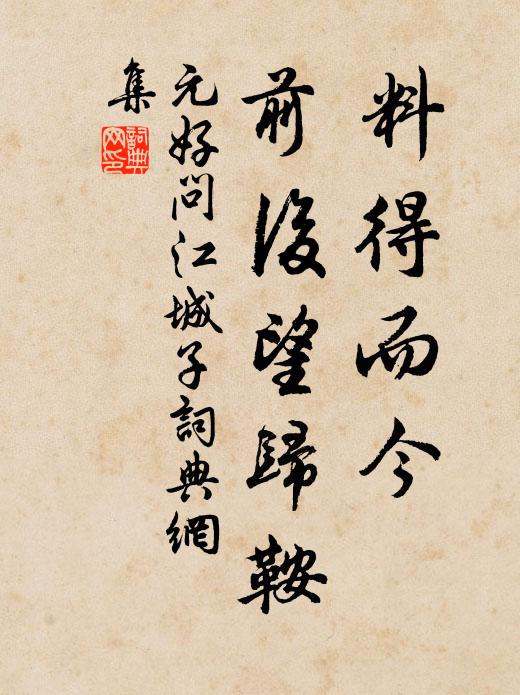 料得而今
前後望歸鞍
元好問江城子詞典網
集
詞典
网印